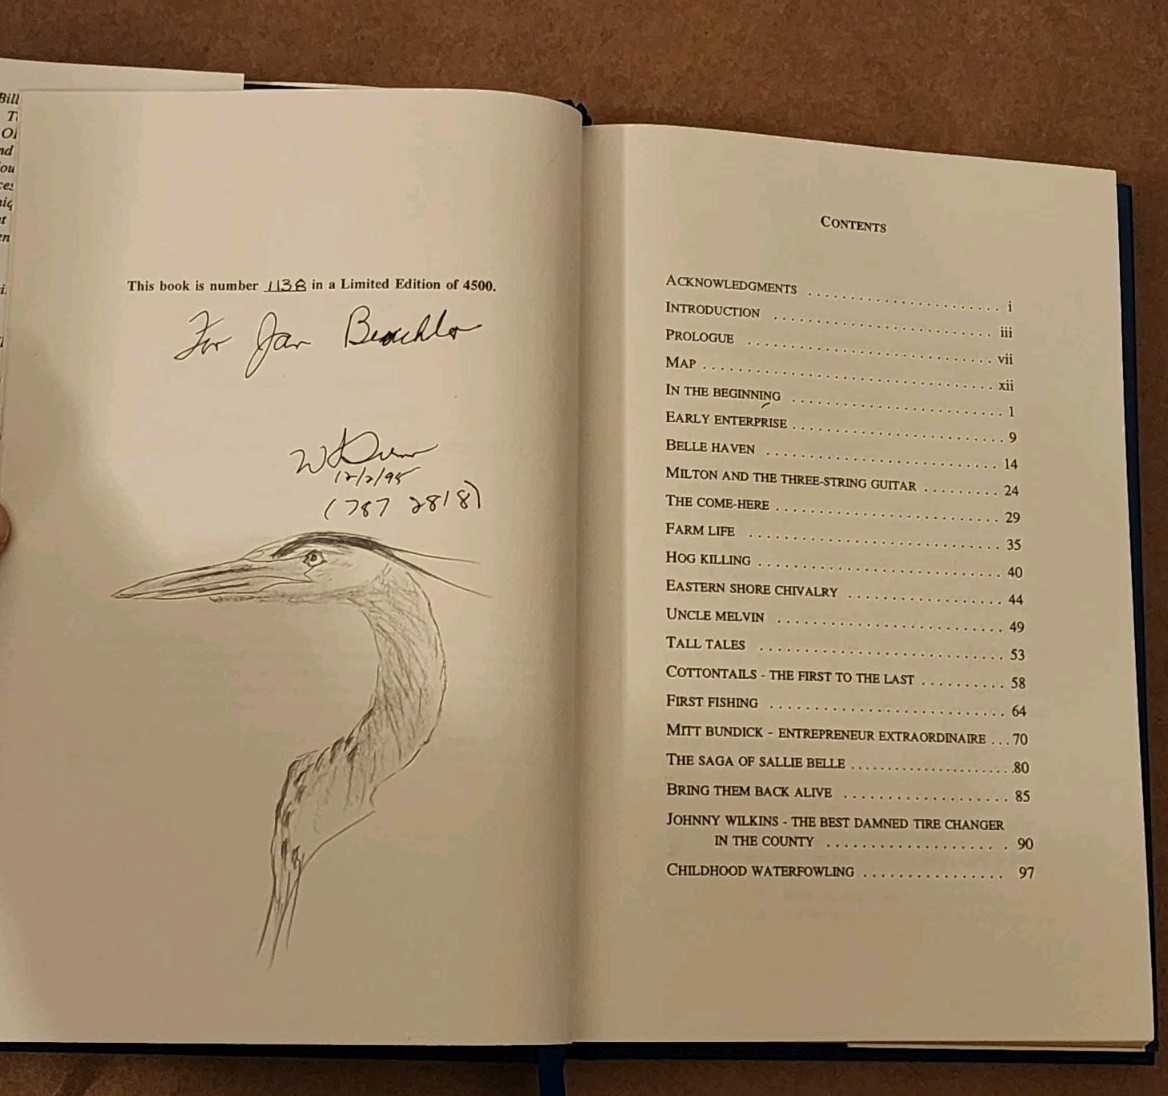 Bill
This book is number 1138 in a Limited Edition of 4500.
For Jan
12/2/95
(787 2818)
CONTENTS
ACKNOWLEDGMENTS .......................... i
INTRODUCTION .............................. iii
PROLOGUE ................................. vii
MAP ....................................... xii
IN THE BEGINNING ........................... 1
EARLY ENTERPRISE ........................... 9
BELLE HAVEN .............................. 14
MILTON AND THE THREE-STRING GUITAR ......... 24
THE COME-HERE ............................. 29
FARM LIFE ................................. 35
HOG KILLING ............................... 40
EASTERN SHORE CHIVALRY .................... 44
UNCLE MELVIN .............................. 49
TALL TALES ................................ 53
COTTONTAILS - THE FIRST TO THE LAST .......... 58
FIRST FISHING .............................. 64
MITT BUNDICK - ENTREPRENEUR EXTRAORDINAIRE ... 70
THE SAGA OF SALLIE BELLE .................... 80
BRING THEM BACK ALIVE ..................... 85
JOHNNY WILKINS - THE BEST DAMNED TIRE CHANGER
IN THE COUNTY ..................... 90
CHILDHOOD WATERFOWLING ................ 97